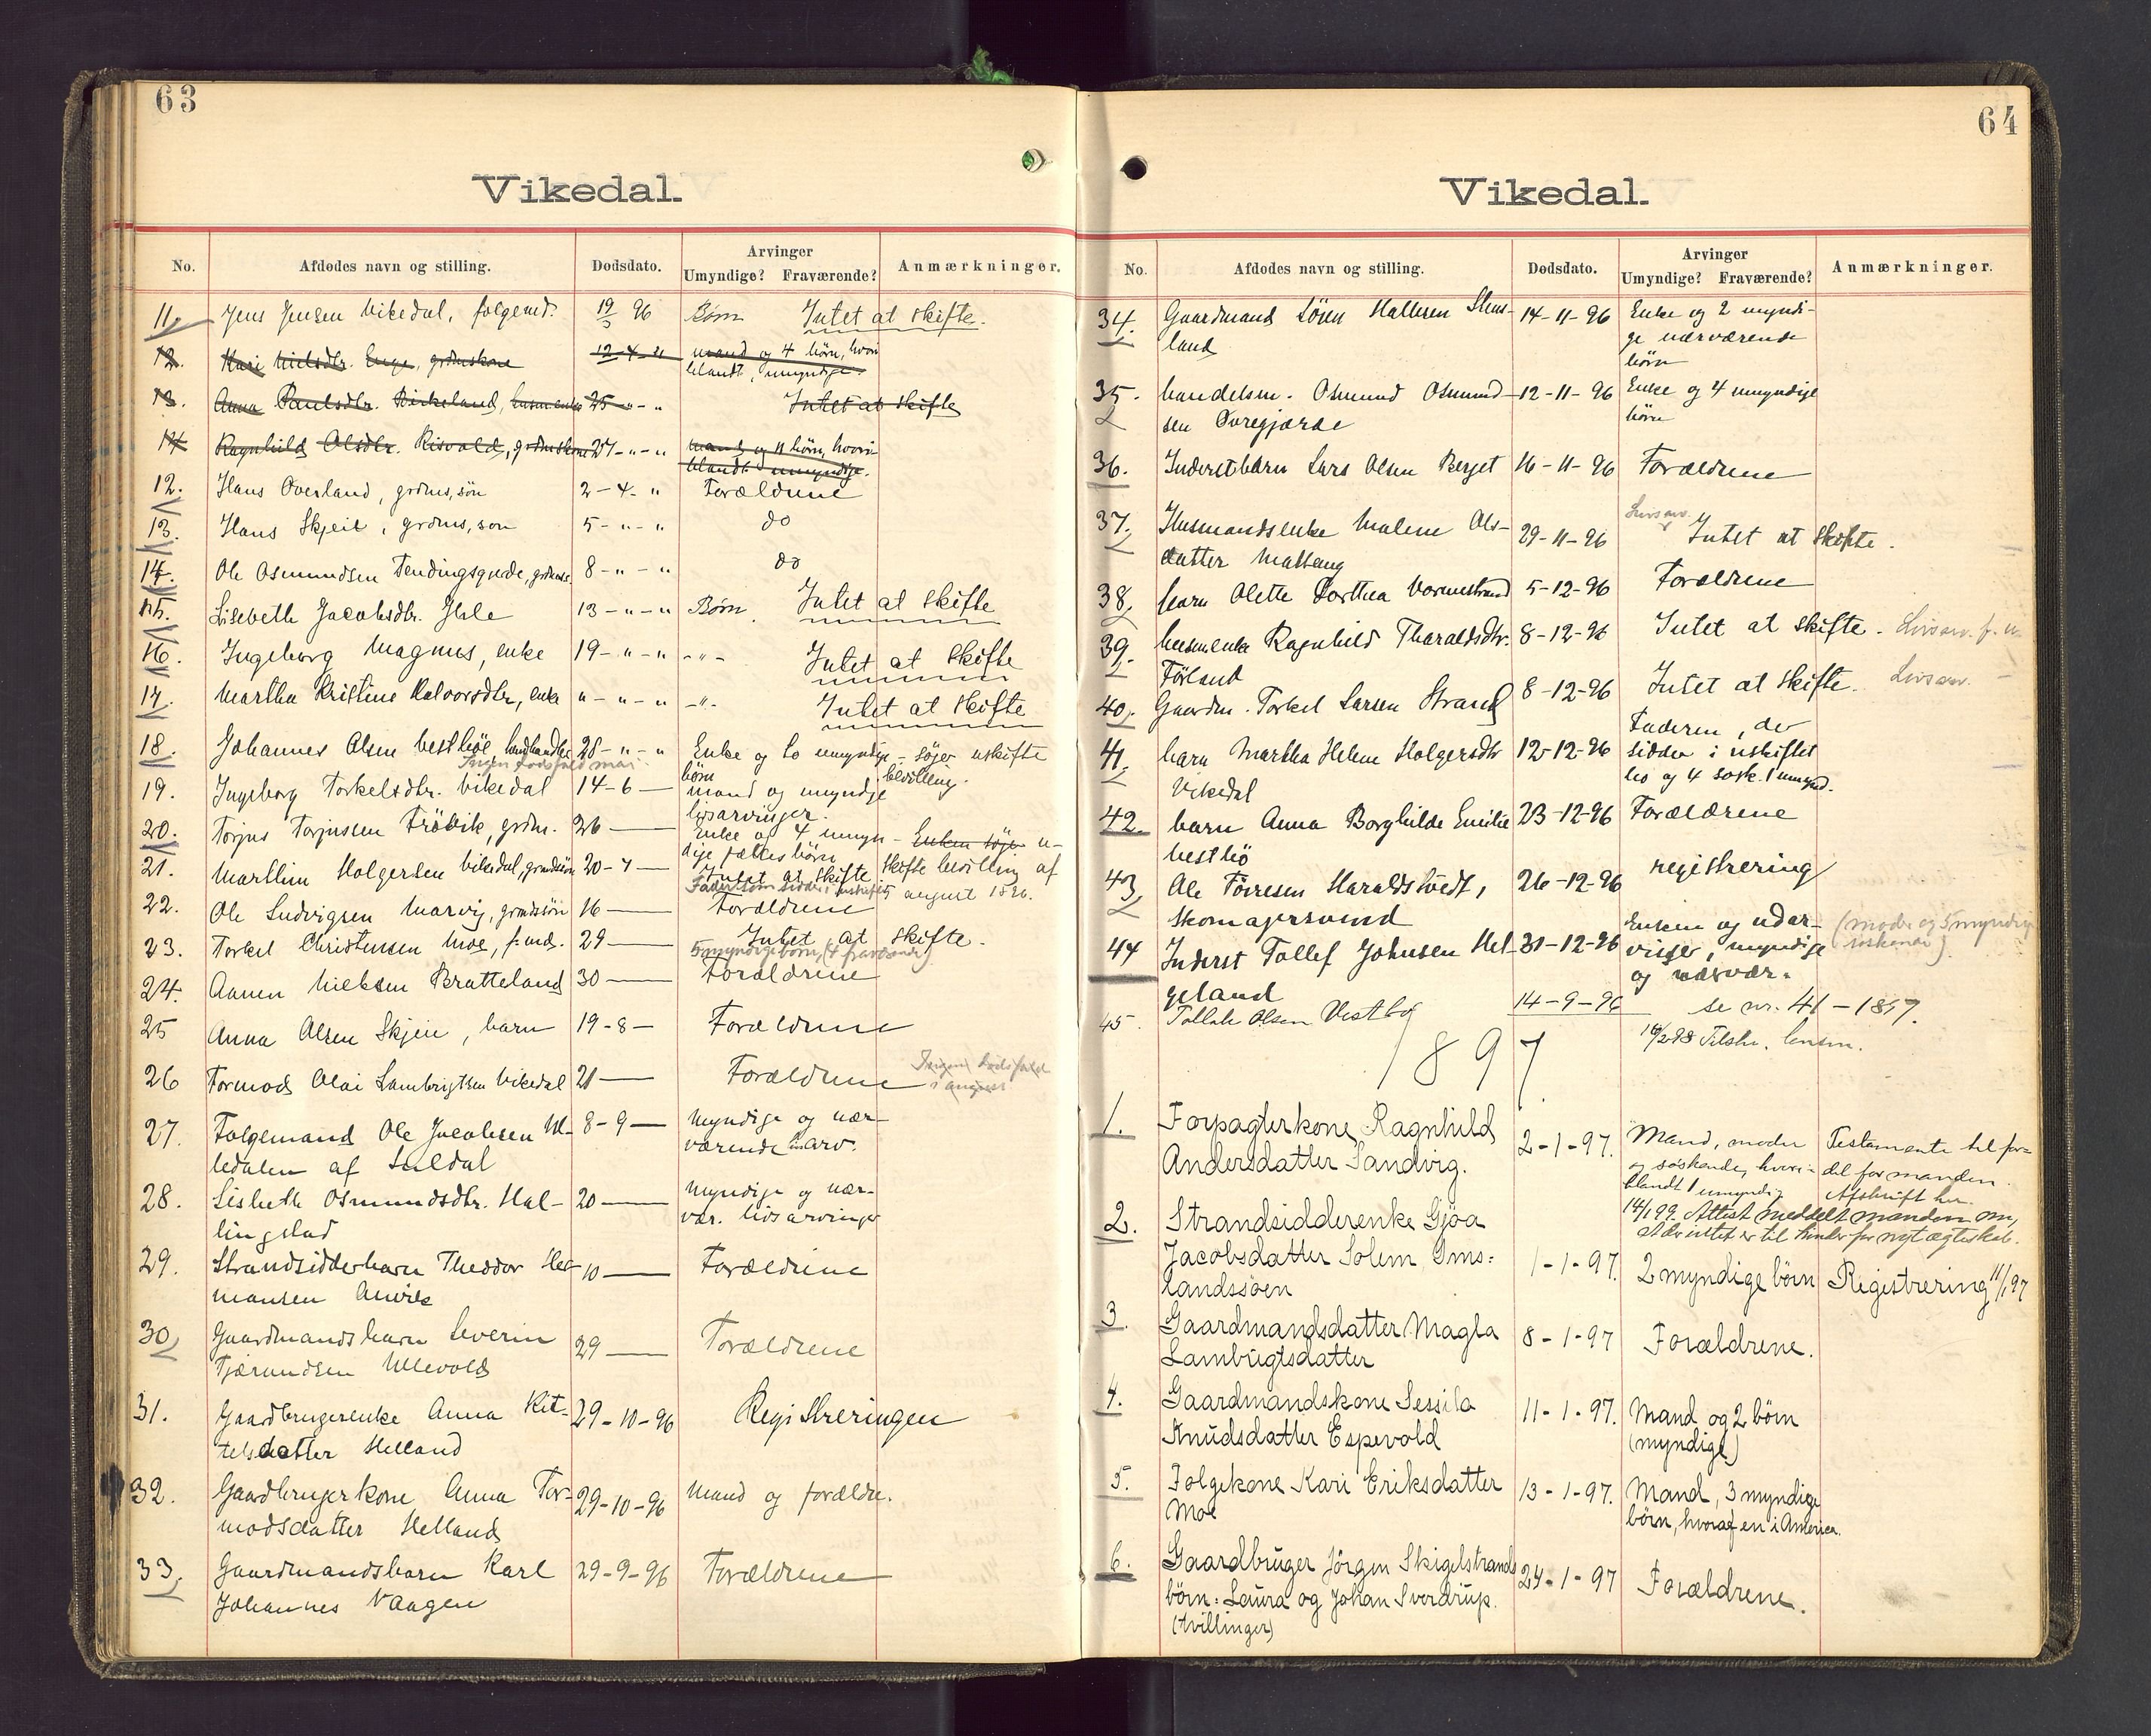 63
Vikedal.
No. Afdødes navn og stilling. Dødsdato. Arvinger Umyndige? Fraværende? Anmærkninger.
11. Jens Jensen Vikedal, følgemd. 19/3 96 Børn Intet at skifte.
12. Kari Nielsdtr. Enge, grdmskone 12-4-" mand og 4 børn, hvori
blandt umyndige.
13. Anna Paulsdtr. Birkeland, husmenke 25-"-" Intet at skifte
14 Ragnhild Olsdtr. Risvold, grdmskone 27-"-" mand og 11 børn, hvori-
blandt umyndige.
12. Hans Øverland, grdms. søn 2-4-" Forældrene
13. Hans Skjeie, grdms. søn 5-"-" do
14. Ole Osmundsen Fendingsgude, 8-"-" do
15. Lisbeth Jacobsdtr. Ihle 13-"-" Børn. Intet at skifte
16. Ingeborg Magnus, enke 19-"-" -"- Intet at skifte
17. Martha Kristine Halvorsdtr, enke "-"-" -"- Intet at skifte
18. Johannes Olsen Vesthøe, landhandler 28-"-" Enke og to umyndige - søger uskifte
børn bevilling.
Ingen dødsfald mai.
19. Ingeborg Torkelsdtr. Vikedal 14-6- mand og umyndje
livsarvinger.
20. Torjus Torjussen Frøvik, grdm. 26 — Enke og 4 umyn- Enken søger u-
dige fælles børn skifte bevilling af
5 august 1896.
21. Marthin Holgersen Vikedal, grmdssøn 20-7- Intet at skifte
Fader som sidder i uskiftet
22. Ole Ludvigsen Marvig, grmdssøn 16 — Forældrene
23. Torkel Christensen Moe, f.md. 29 — Intet at skifte.
5 myndige børn, (4 fraværende)
24. Aanen Nielsen Bratteland 30 — Forældrene
25 Anna Olsen Skjeie, barn 19-8- Forældrene
26 Tormod Olai Lambrigtsen Vikedal 21 — Forældrene Ingen dødsfald
i august
27. Følgemand Ole Jacobsen 8-9- Myndige og nær-
ledalen af Suldal værende arv.
28. Lisbeth Osmundsdtr. Hal- 20 — Myndige og nær-
lingstad vær. livsarvinger
29. Strandsidderbarn Theodor Her- 10 — Forældrene
mansen Anvik
30 Gaardmandsbarn Severin 29 — Forældrene
Tjærandsen Ullevold
31. Gaardbrugerenke Anna Kit- 29-10-96 Registreringen
telsdatter Helland
32. Gaardbrugerkone Anna Tor- 29-10-96 Mand og forældre.
modsdatter Helland
33. Gaardmandsbarn Karl 29-9-96 Forældrene
Johannes Vaagen
64
Vikedal.
No. Afdødes navn og stilling. Dødsdato. Arvinger Umyndige? Fraværende? Anmærkninger.
34. Gaardmand Sjøen Hallesen 14-11-96 Enke og 2 myndi-
land ge nærværende
børn
35. handelsm. Osmund Osmund- 12-11-96 Enke og 4 umyndige
sen Øvregjærde børn
36. Inderstbarn Lars Olsen Berget 16-11-96 Forældrene
37. Husmandsenke Malene Ols- 29-11-96 Livsarv. Intet at skifte.
datter Mattang
38. barn Olette Dorthea Vormestrand 5-12-96 Forældrene
39. husm.enke Ragnhild Tharaldsdtr. 8-12-96 Intet at skifte. Livsarv.
Førland
40. Gaardm. Torkel Larsen Strand 8-12-96 Intet at skifte. Livsarv.
41. barn Martha Helene Holgersdtr 12-12-96 Faderen, der
Vikedal sidder i uskiftet
bo og 4 søsk. 1 umynd.
42. barn Anna Borghilde Emilie 23-12-96 Forældrene
Vesthø
43. Ole Tørresen Haraldstvedt, 26-12-96 registrering
skomagersvend
44 Inderst Tollef Johnsen Hel- 31-12-96 Enken og udar- (moder og 5 myndige
geland vinger, myndige søskende)
og nærvær.
45. Tollak Olsen Vestbø 14-9-96 se nr. 41-1897.
16/2 98 Tilskr. lensm.
1897
1. Forpagterkone Ragnhild 2-1-97. Mand, moder Testamente til for-
Andersdatter Sandvig. og søskende, hvori- del for manden.
blandt 1 umyndig Afskrift her.
14/1 99. Attest meddelt manden om,
at der intet er til hinder for nyt ægteskab.
2. Strandsidderenke Gjøa
Jacobsdatter Solem Oms- 1-1-97. 2 myndige børn Registrering 11/1 97
landssøen
3. Gaardmandsdatter Magla 8-1-97 Forældrene.
Lambrigtsdatter
4. Gaardmandskone Sessila 11-1-97. Mand og 2 børn
Knudsdatter Espevold (myndige)
5. Følgekone Kari Eriksdatter 13-1-97. Mand, 3 myndige
Moe børn, hvoraf en i America.
6. Gaardbruger Jørgen Skigelstrands 24-1-97 Forældrene.
børn: Laura og Johan Sverdrup.
(tvillinger)